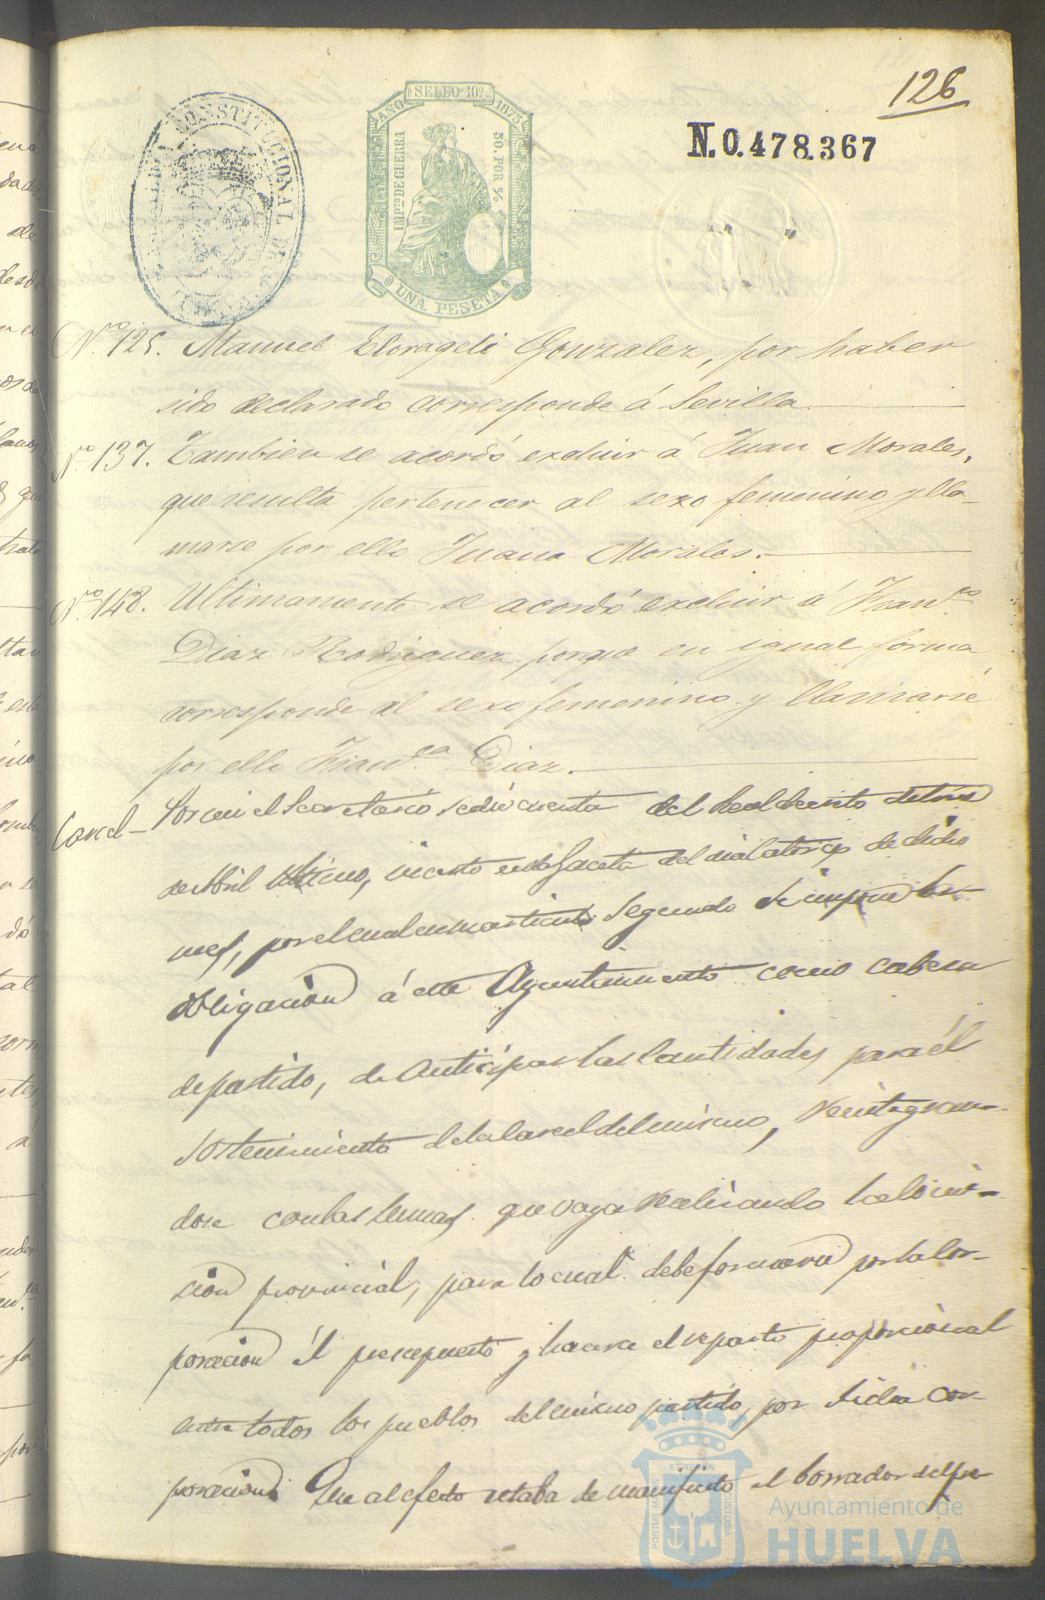 126
N. 0.478.367
AÑO SELLO 10º 1875
IMPto DE GUERRA
50. POR %
UNA PESETA
CONSTITUCIONAL DE
Nº 125. Manuel Gonzalez, por haber
sido declarado corresponde á Sevilla.
Nº 137. Tambien se acordó excluir á Juan Morales,
que resulta pertenecer al sexo femenino y lla-
marse por ello Juana Morales.
Nº 148. Ultimamente se acordó excluir á Franco
Diaz Rodriguez porque en igual forma
corresponde al sexo femenino y llamarse
por ello Franca Diaz.
Carcel— Por mi el Secretario se dió cuenta del Real decreto de trece
de Abril ultimo, inserto en la Gaceta del dia catorce de dicho
mes, por el cual en su articulo segundo se impone la
obligacion á este Ayuntamiento como cabeza
de partido, de anticipar las cantidades para él
sostenimiento de la Carcel del mismo, reintegran-
dose con las sumas que vaya realizando la Comi-
sion provincial, para lo cual debe formarse por la Cor-
poracion él presupuesto y hacerse el reparto proporcional
entre todos los pueblos del mismo partido, por dicha cor-
poracion. Que al efecto estaba de manifiesto el borrador del pre
PORTUS MARIS ET TERRÆ CUSTODIA
Ayuntamiento de
HUELVA